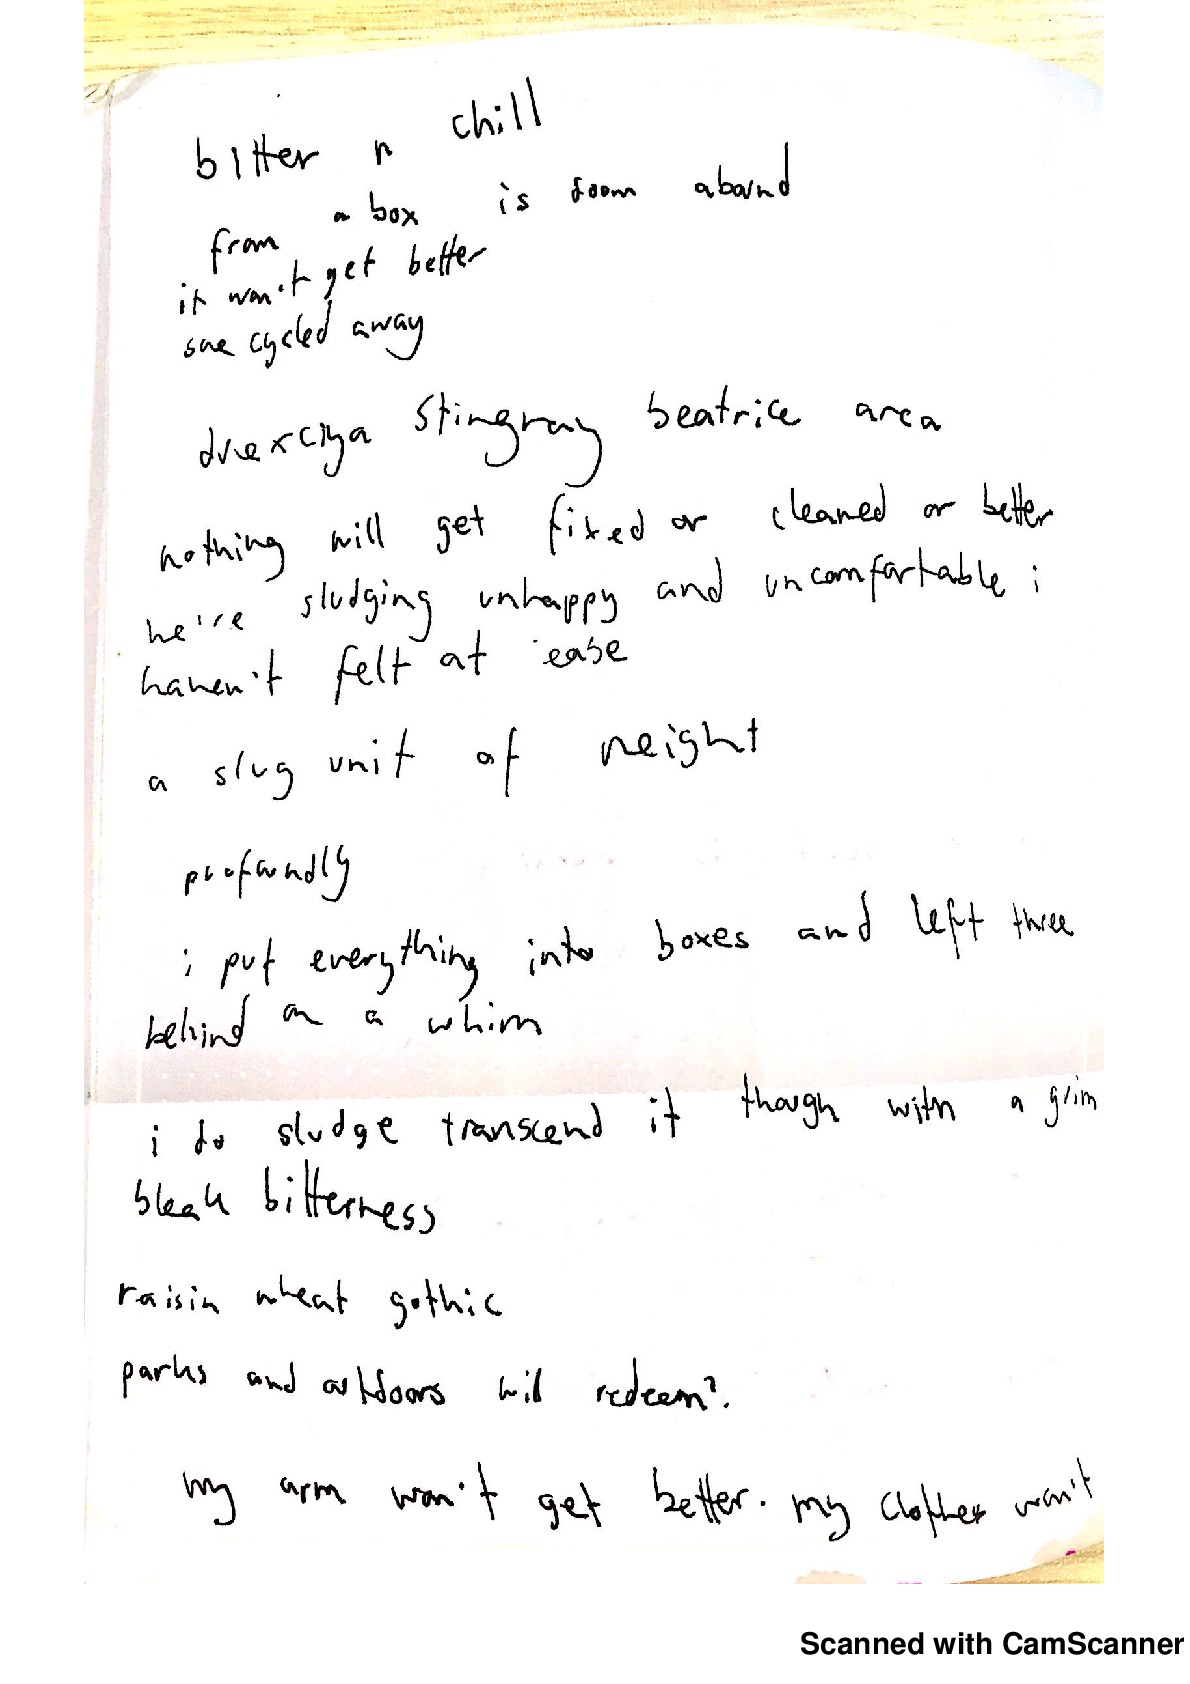 bitter n chill
from a box is doom abound
it won't get better
she cycled away
drexciya stingray beatrice area
nothing will get fixed or cleaned or better
he're sludging unhappy and uncomfortable i
haven't felt at ease
a slug unit of weight
profoundly
i put everything into boxes and left three
behind on a whim
i do sludge transcend it though with a grim
bleak bitterness
raisin wheat gothic
parks and outdoors will redeem?.
my arm won't get better. my clothes won't
Scanned with CamScanner